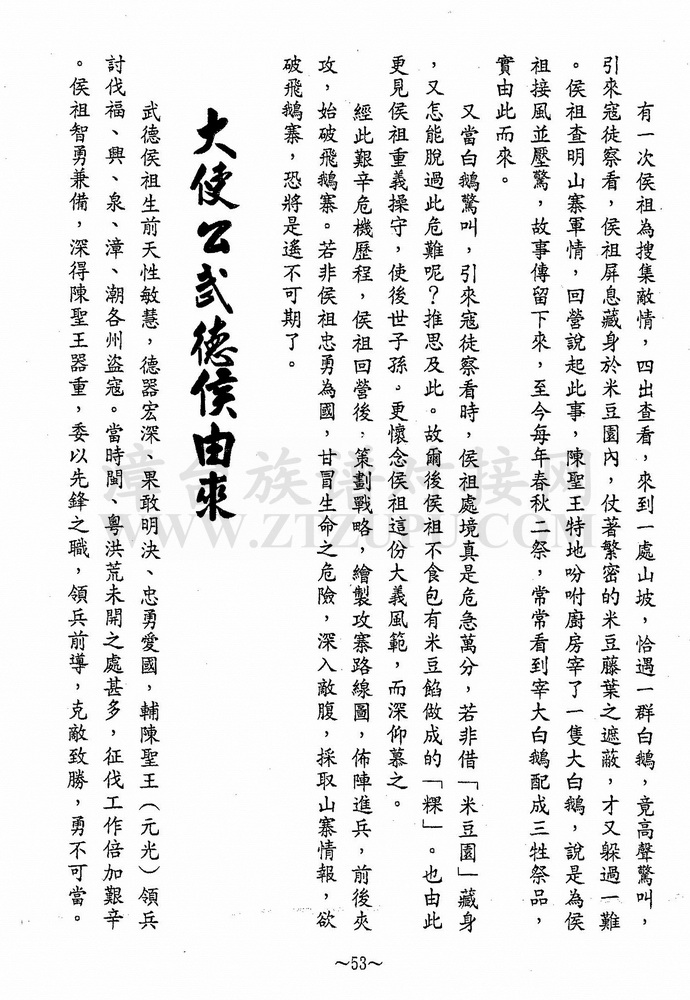 有一次侯祖為搜集敵情，四出查看，來到一處山坡，恰遇一群白鵝，竟高聲驚叫，
引來寇徒察看，侯祖屏息藏身於米豆園內，仗著繁密的米豆藤葉之遮蔽，才又躲過一難
。侯祖查明山寨軍情，回營說起此事，陳聖王特地吩咐廚房宰了一隻大白鵝，說是為侯
祖接風並壓驚，故事傳留下來，至今每年春秋二祭，常常看到宰大白鵝配成三牲祭品，
實由此而來。
又當白鵝驚叫，引來寇徒察看時，侯祖處境真是危急萬分，若非借「米豆園」藏身
，又怎能脫過此危難呢？推思及此。故爾後侯祖不食包有米豆餡做成的「粿」。也由此
更見侯祖重義操守，使後世子孫。更懷念侯祖這份大義風範，而深仰慕之。
經此艱辛危機歷程，侯祖回營後，策劃戰略，繪製攻寨路線圖，佈陣進兵，前後夾
攻，始破飛鵝寨。若非侯祖忠勇為國，甘冒生命之危險，深入敵腹，採取山寨情報，欲
破飛鵝寨，恐將是遙不可期了。
大使公武德侯由來
武德侯祖生前天性敏慧，德器宏深、果敢明決、忠勇愛國，輔陳聖王（元光）領兵
討伐福、興、泉、漳、潮各州盜寇。當時閩、粵洪荒未開之處甚多，征伐工作倍加艱辛
。侯祖智勇兼備，深得陳聖王器重，委以先鋒之職，領兵前導，克敵致勝，勇不可當。
～53～
漳台族谱对接网
WWW.ZTZUPU.COM